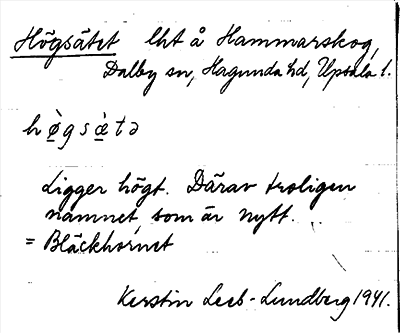 Högsätet lht å Hammarskog,
Dalby sn, Hagunda hd, Upsala l.
hø̀gsæ̀tə
Ligger högt. Därav troligen
namnet, som är nytt.
= Bläckhornet
Kerstin Leeb-Lundberg 1941.